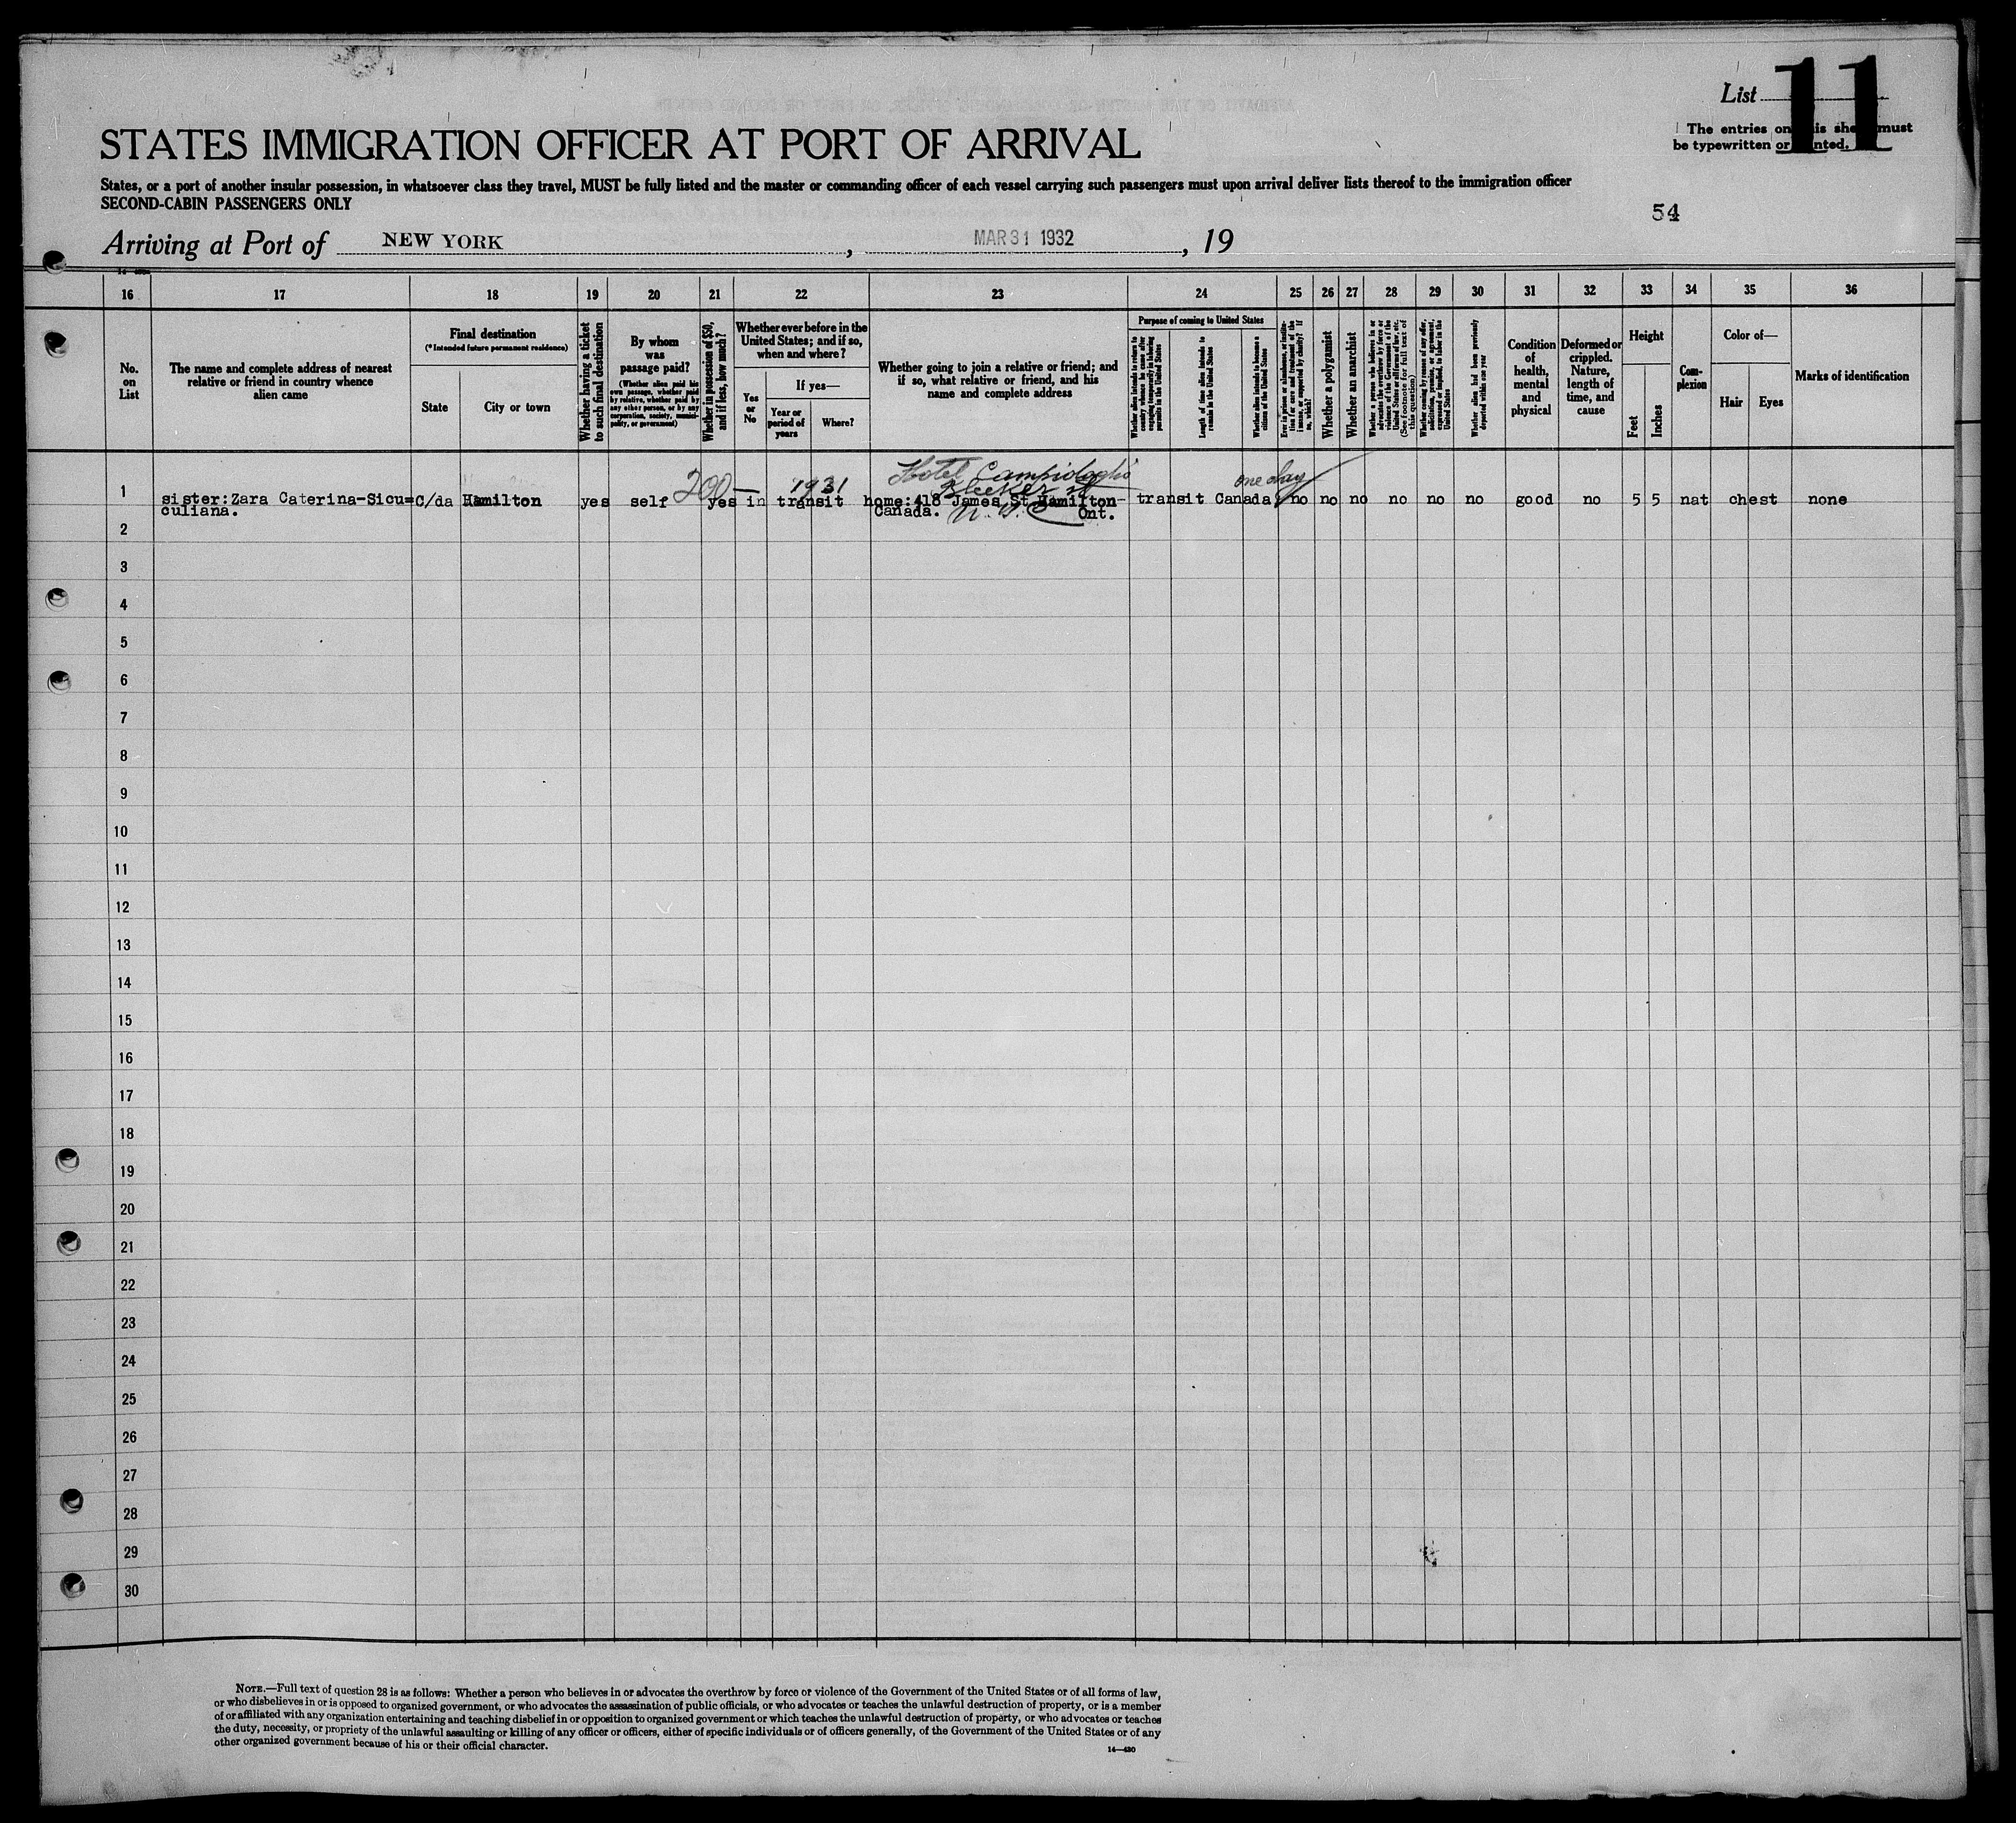 List 11
STATES IMMIGRATION OFFICER AT PORT OF ARRIVAL
The entries on this sheet must
be typewritten or printed.
States, or a port of another insular possession, in whatsoever class they travel, MUST be fully listed and the master or commanding officer of each vessel carrying such passengers must upon arrival deliver lists thereof to the immigration officer
SECOND-CABIN PASSENGERS ONLY
54
Arriving at Port of NEW YORK , MAR 31 1932 , 19
16 17 18 19 20 21 22 23 24 25 26 27 28 29 30 31 32 33 34 35 36
No. on List
The name and complete address of nearest relative or friend in country whence alien came
Final destination
(*Intended future permanent residence)
State
City or town
Whether having a ticket to such final destination
By whom was passage paid?
(Whether alien paid his own passage, whether paid by relative, whether paid by any other person, or by any corporation, society, municipality, or government)
Whether in possession of $50, and if less, how much?
Whether ever before in the United States; and if so, when and where?
Yes or No
If yes—
Year or period of years
Where?
Whether going to join a relative or friend; and if so, what relative or friend, and his name and complete address
Purpose of coming to United States
Whether alien intends to return to country whence he came after engaging temporarily in laboring pursuits in the United States
Length of time alien intends to remain in the United States
Whether alien intends to become a citizen of the United States
Ever in prison or almshouse, or institution for care and treatment of the insane, or supported by charity? If so, which?
Whether a polygamist
Whether an anarchist
Whether a person who believes in or advocates the overthrow by force or violence of the Government of the United States or all forms of law, etc. (See footnote for full text of this question)
Whether coming by reason of any offer, solicitation, promise, or agreement, expressed or implied, to labor in the United States
Whether alien had been previously deported within one year
Condition of health, mental and physical
Deformed or crippled. Nature, length of time, and cause
Height
Feet
Inches
Complexion
Color of—
Hair
Eyes
Marks of identification
200— 1931 Hotel Campidoglio one day
Bleeker st
1 sister:Zara Caterina-Sicu= C/da Hamilton yes self yes in transit home:418 James St Hamilton transit Canada no no no no no no good no 5 5 nat chest none
culiana. Canada. N.Y.C Ont.
2
3
4
5
6
7
8
9
10
11
12
13
14
15
16
17
18
19
20
21
22
23
24
25
26
27
28
29
30
NOTE.—Full text of question 28 is as follows: Whether a person who believes in or advocates the overthrow by force or violence of the Government of the United States or of all forms of law,
or who disbelieves in or is opposed to organized government, or who advocates the assassination of public officials, or who advocates or teaches the unlawful destruction of property, or is a member
of or affiliated with any organization entertaining and teaching disbelief in or opposition to organized government or which teaches the unlawful destruction of property, or who advocates or teaches
the duty, necessity, or propriety of the unlawful assaulting or killing of any officer or officers, either of specific individuals or of officers generally, of the Government of the United States or of any
other organized government because of his or their official character.
14—430